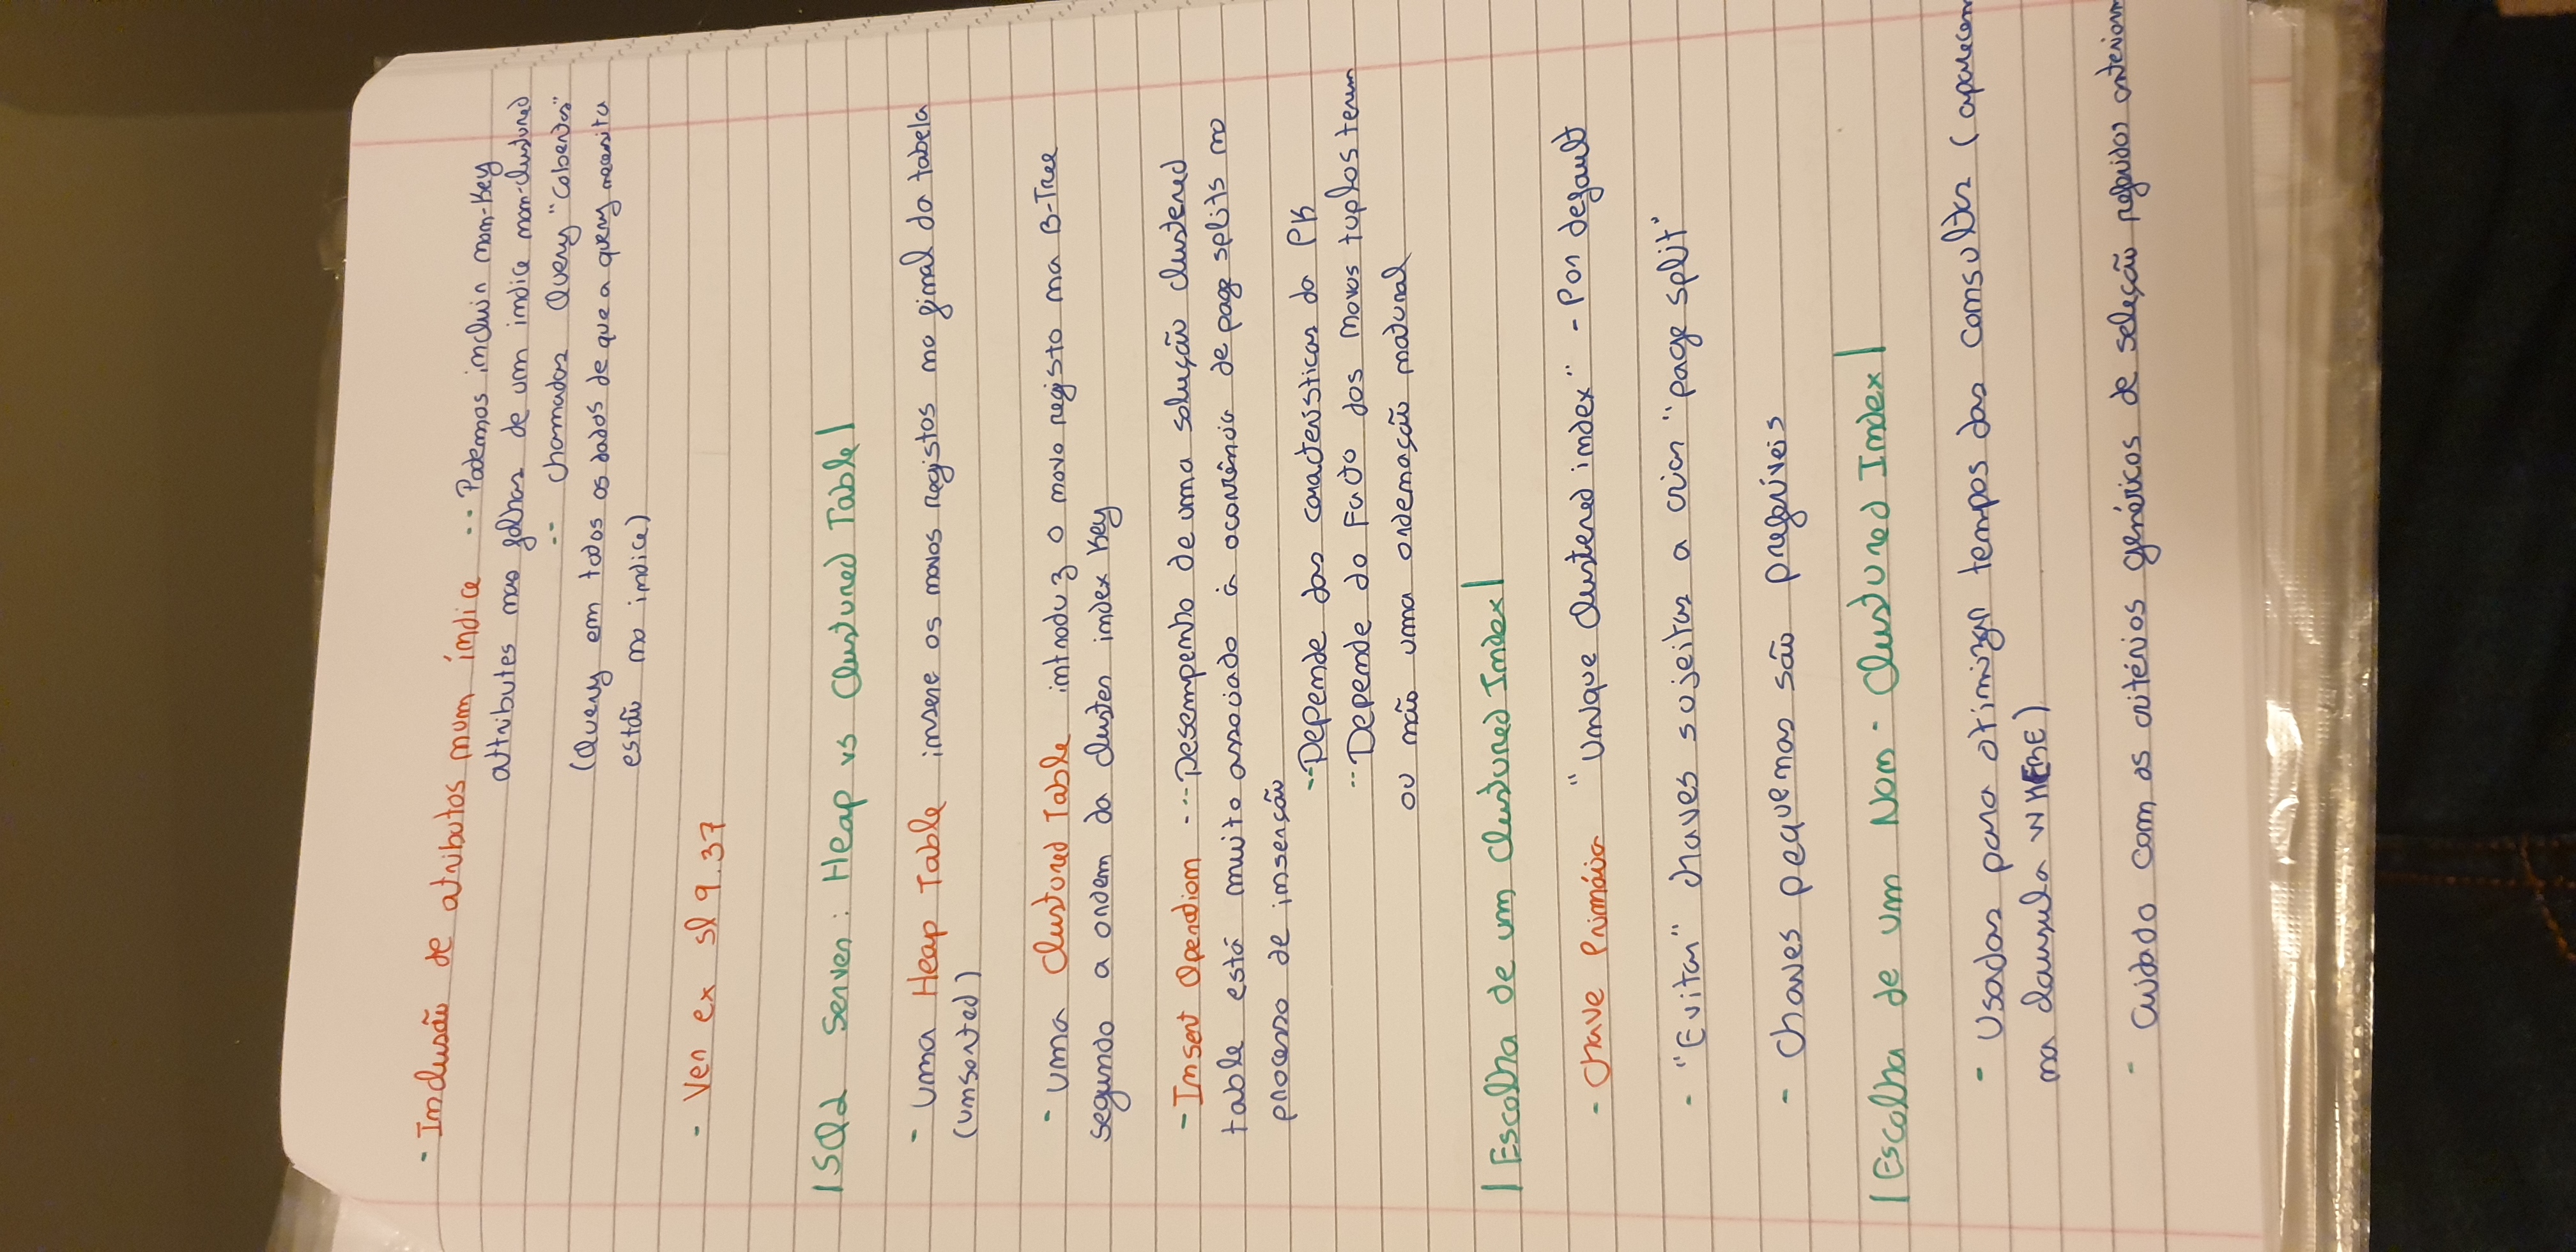 - Inclusão de atributos num índice -- Podemos incluir non-key
attributes nas folhas de um indice non-clustured
-- chamadas Query "Cobertas"
(Query em todos os dados de que a query necessita
estão no indice)
- Ver ex sl 9.37
|SQL Server: Heap vs Clustured Table|
- Uma Heap Table insere os novos registos no final da tabela
(unsorted)
- Uma Clustured Table introduz o novo registo na B-Tree
segundo a ordem da cluster index key
- Insert Operation --- Desempenho de uma solução clustered
table está muito associado à ocorrência de page splits no
processo de inserção
-- Depende das características da PK
-- Depende do facto dos novos tuplos terem
ou não uma ordenação natural
|Escolha de um Clustured Index|
- Chave Primária "Unique Clustered index" - Por default
- "Evitar" chaves sujeitas a criar "page split"
- Chaves pequenas são preferíveis
|Escolha de um Non-Clustured Index|
- Usadas para otimizar tempos das consultas (aparecem
na clausula WHERE)
- Cuidado com os critérios genéricos de seleção referidos